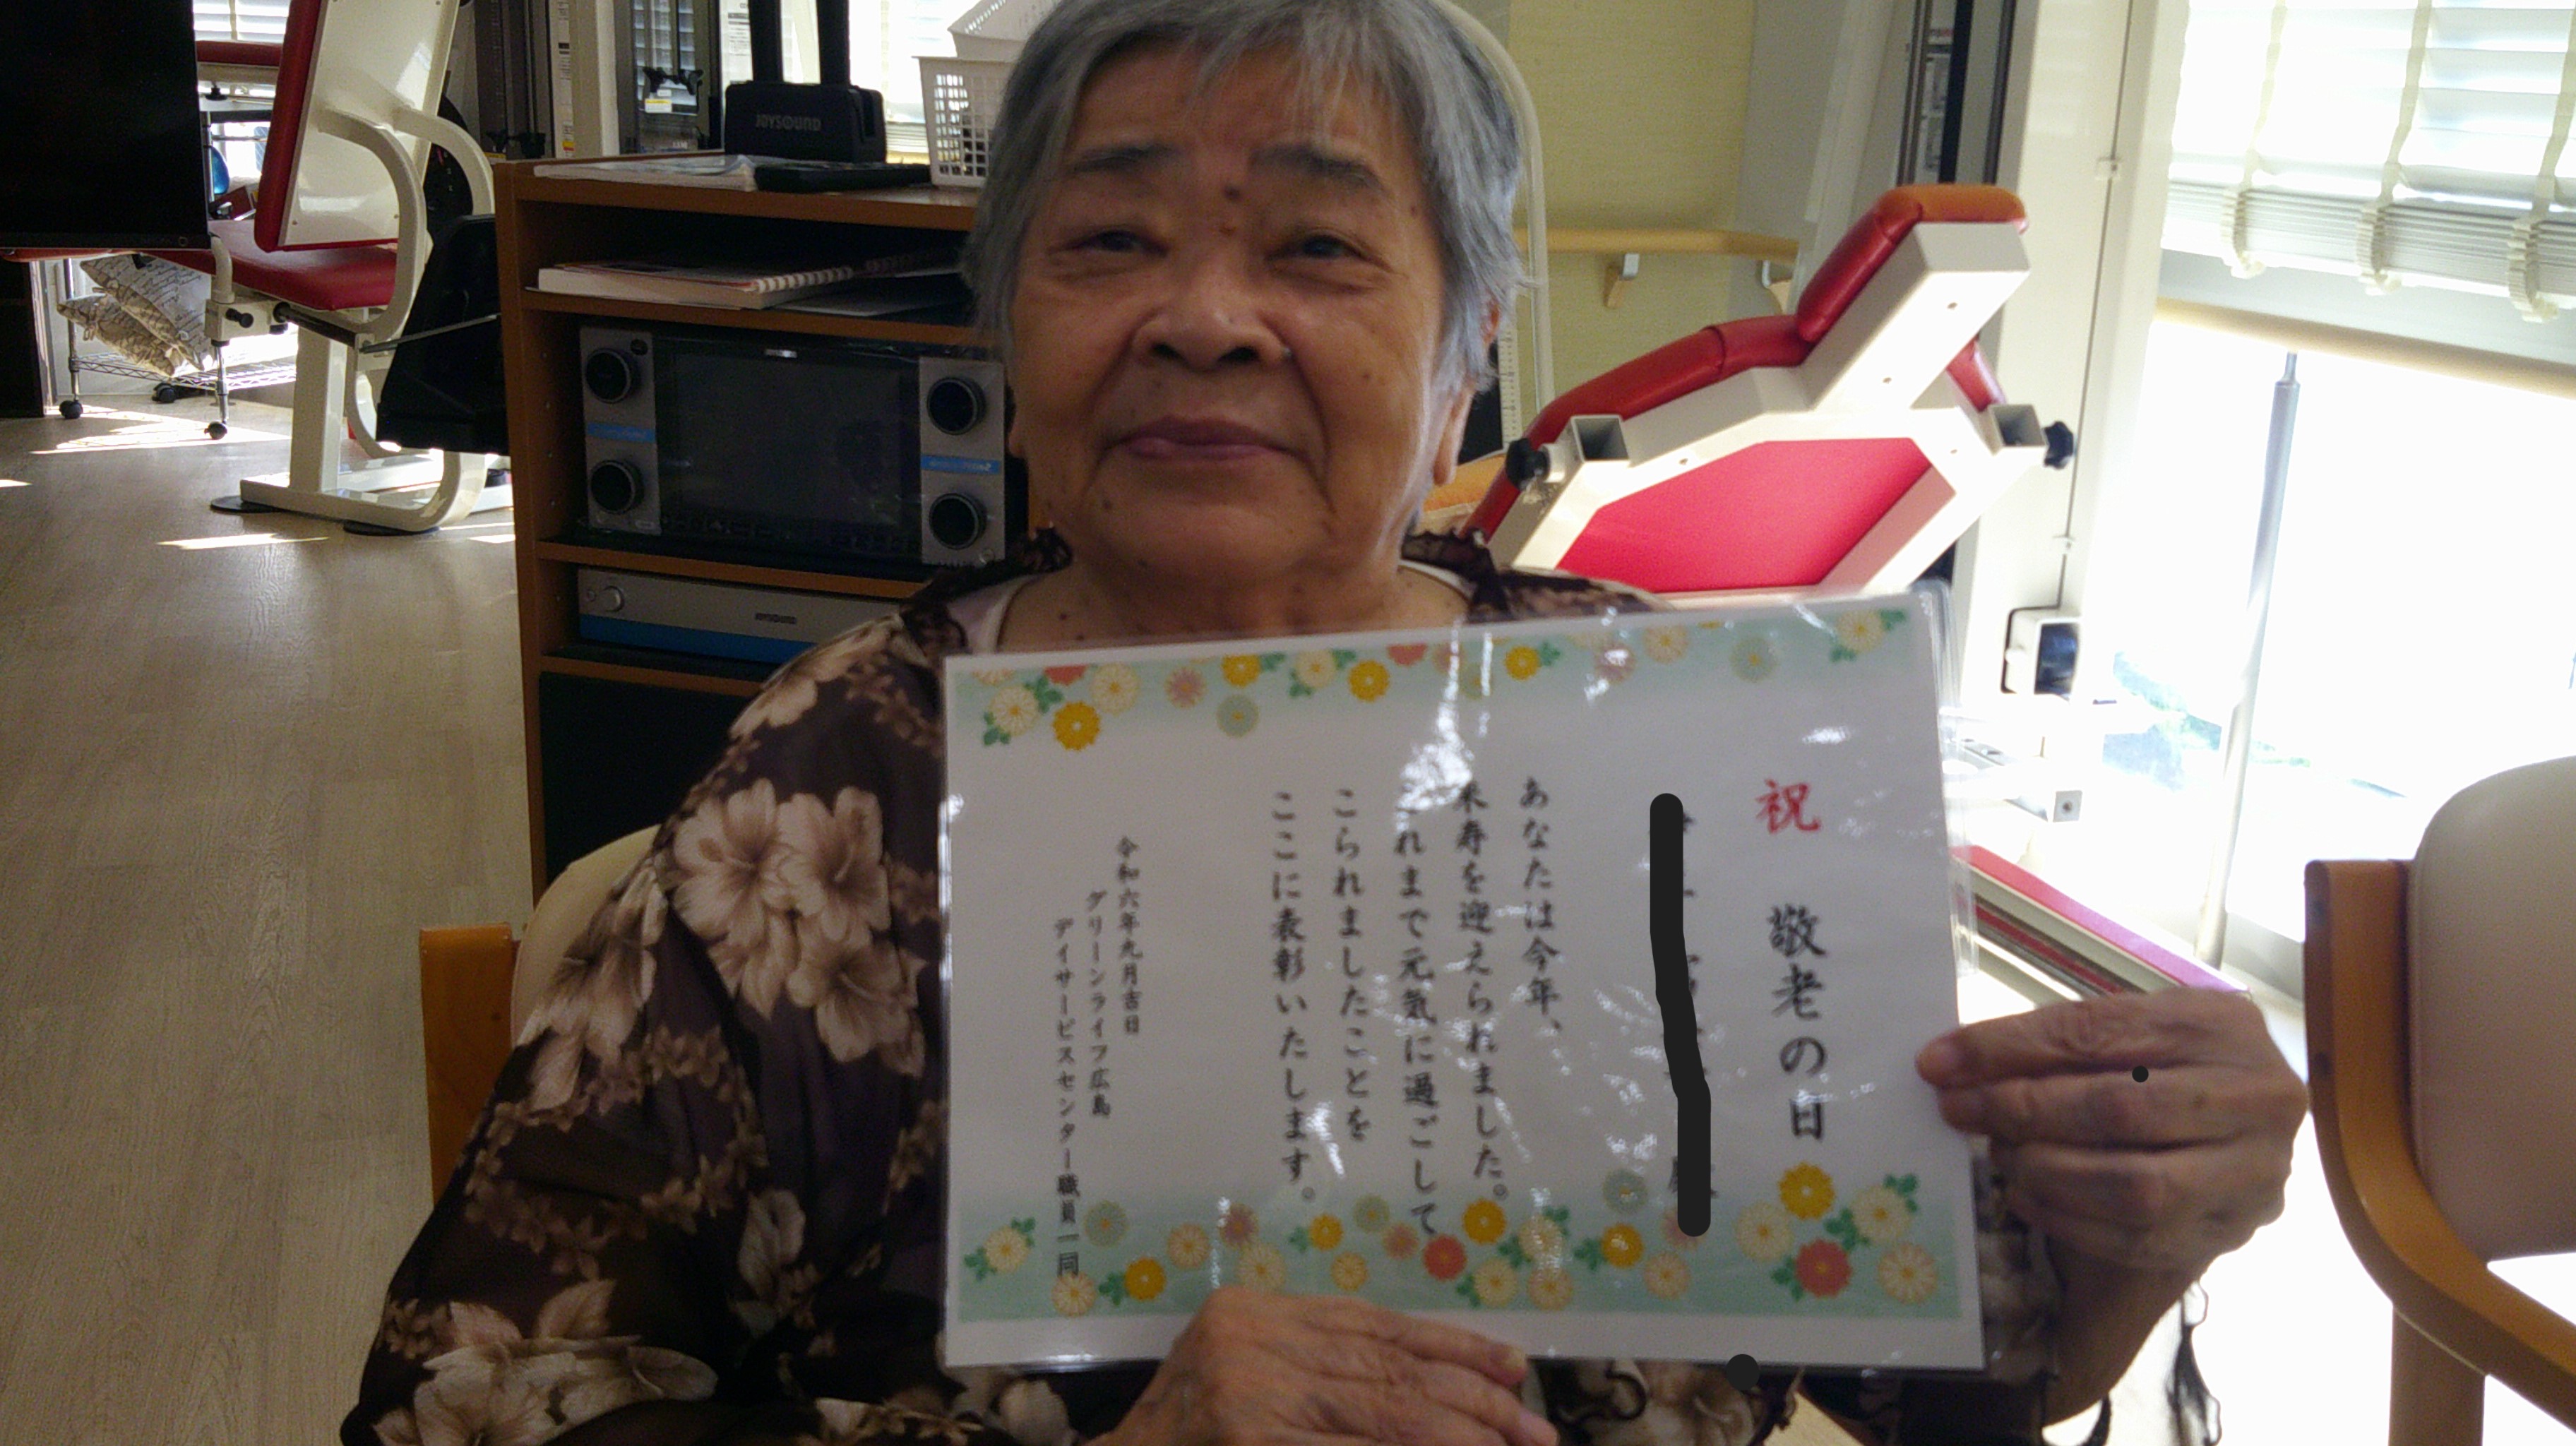 祝 敬老の日
あなたは今年、
米寿を迎えられました。
これまで元気に過ごして
こられましたことを
ここに表彰いたします。
令和六年九月吉日
グリーンライフ広島
デイサービスセンター職員一同
JOYSOUND
JOYSOUND